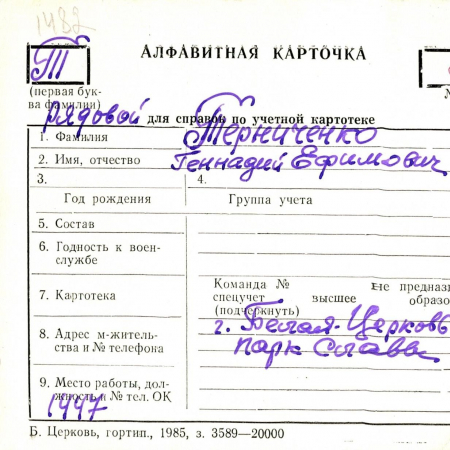 1482
Т
АЛФАВИТНАЯ КАРТОЧКА
(первая бук-
ва фамилии)
Рядовой для справок по учетной картотеке
1. Фамилия Терниченко
2. Имя, отчество Геннадий Ефимович
3. 4.
Год рождения Группа учета
5. Состав
6. Годность к воен-
службе
7. Картотека
Команда № Не предназн
спецучет высшее образо
(подчеркнуть)
8. Адрес м-житель-
ства и № телефона
г. Белая-Церковь
парк Славы
9. Место работы, дол-
жность и № тел. ОК
1997
Б. Церковь, гортип., 1985, з. 3589—20000